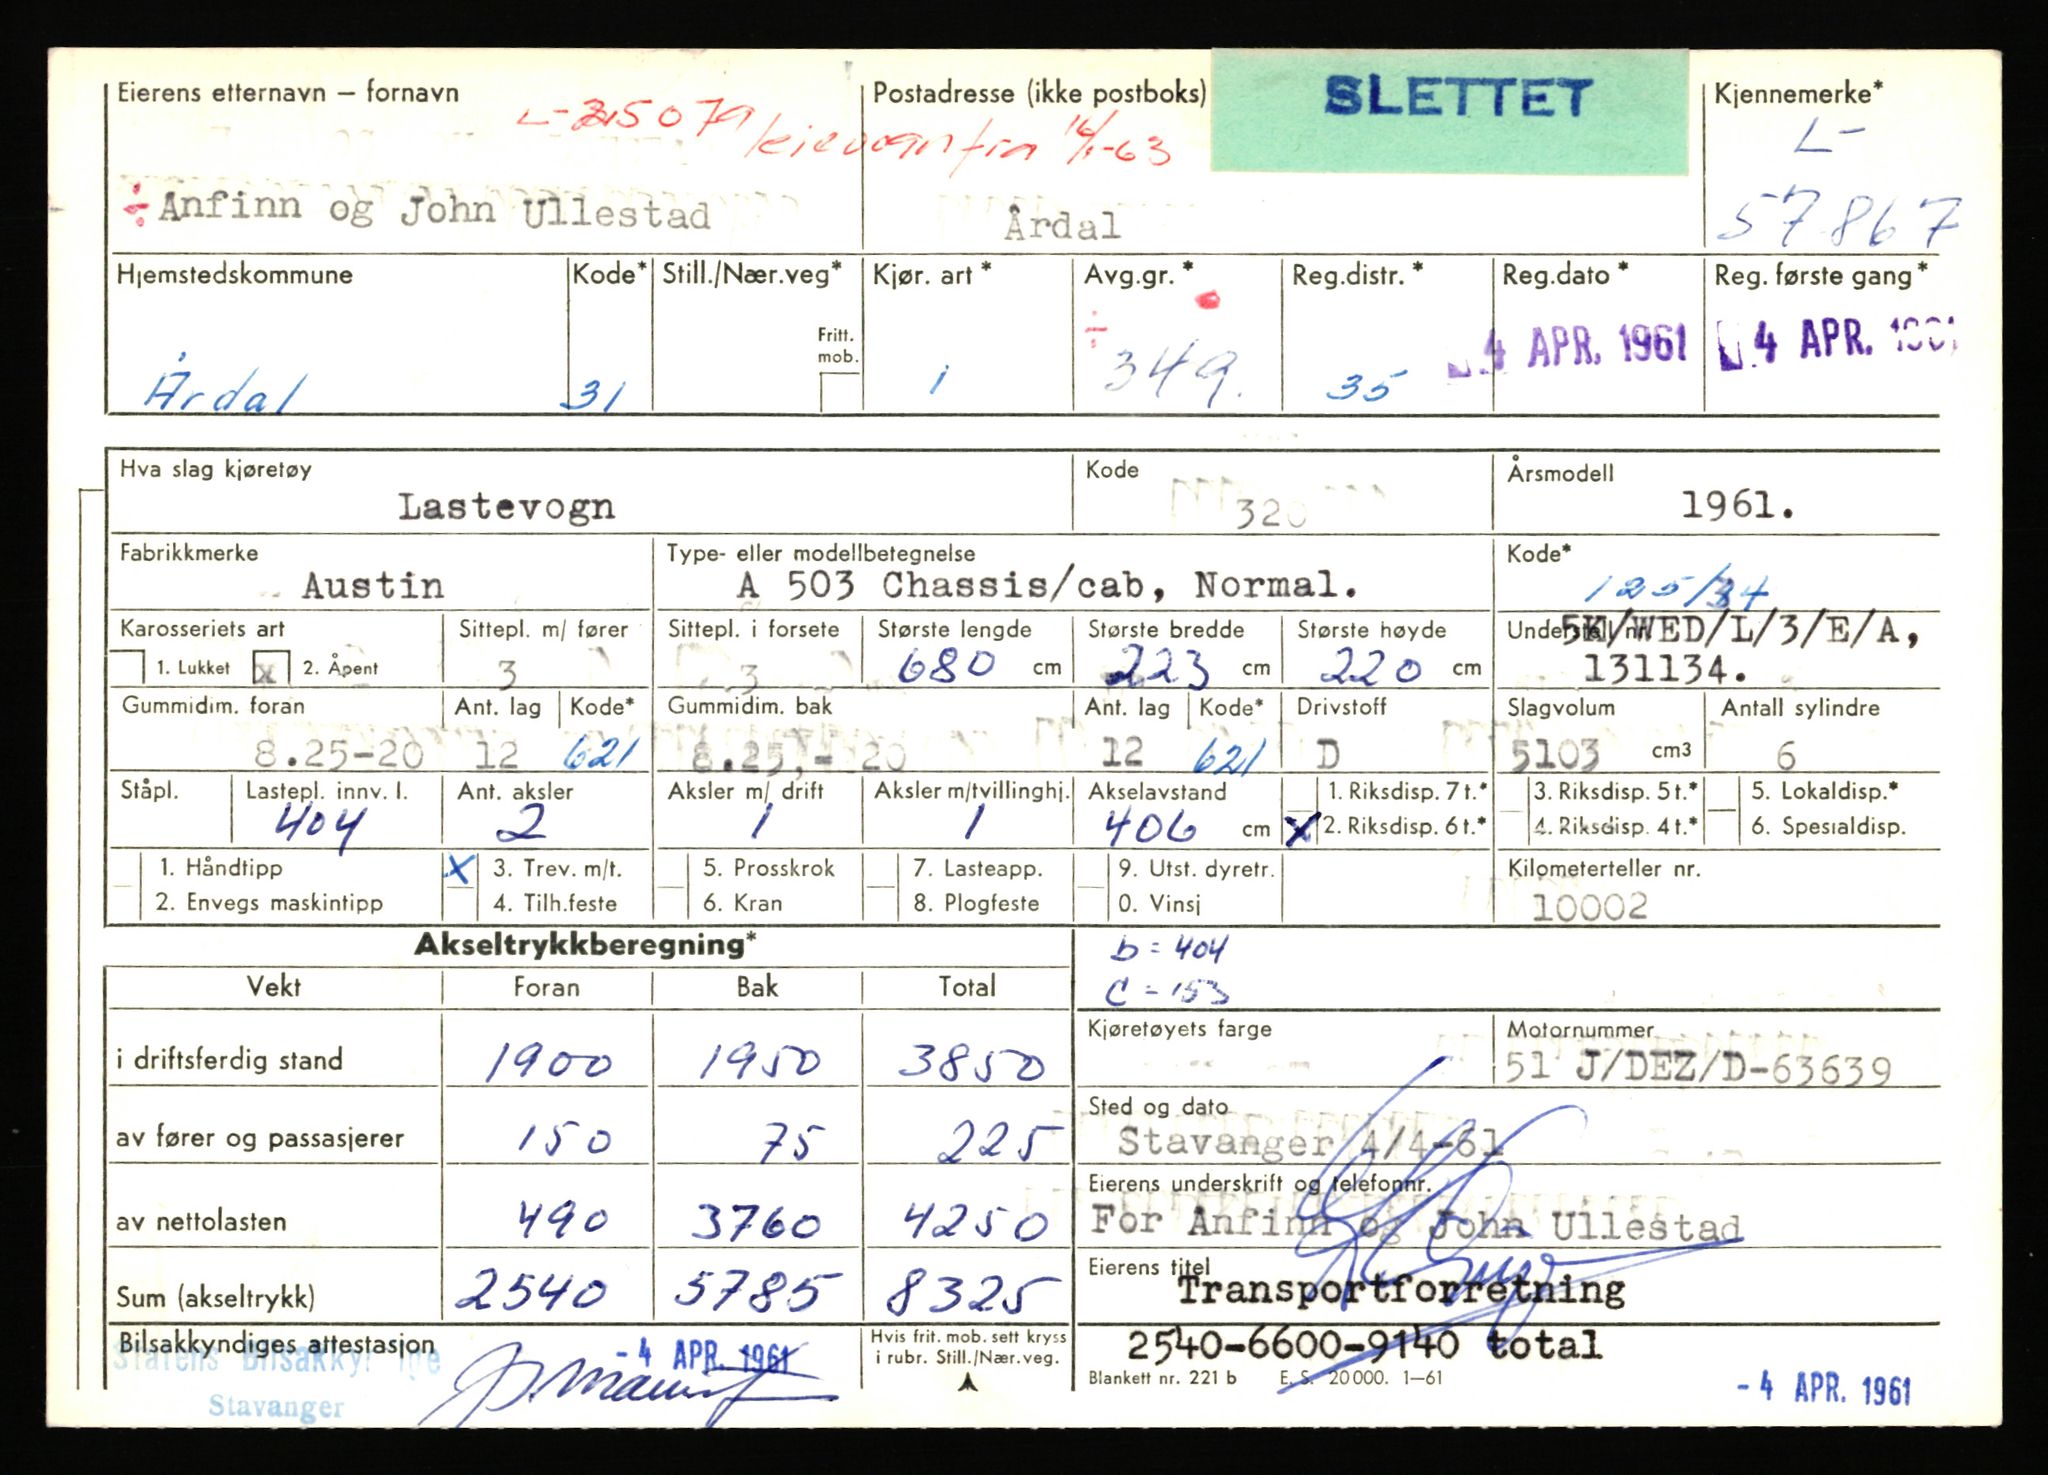 Eierens etternavn — fornavn
Postadresse (ikke postboks)
SLETTET
Kjennemerke*
L-
leievogn fra 16/1-63
57867
÷ Anfinn og John Ullestad
Årdal
Hjemstedskommune Kode* Still./Nær.veg* Kjør. art * Avg.gr. * Reg.distr. * Reg.dato * Reg. første gang *
Fritt. mob.
÷
4 APR. 1961
4 APR. 1961
Årdal 31 1 349. 35
Hva slag kjøretøy Kode Årsmodell
Lastevogn 320 1961.
Fabrikkmerke Type- eller modellbetegnelse Kode*
Austin A 503 Chassis/cab, Normal. 125/34
Karosseriets art Sittepl. m/ fører Sittepl. i forsete Største lengde Største bredde Største høyde Understell nr.
5K/WED/L/3/E/A,
1. Lukket x 2. Åpent 3 3 680 cm 223 cm 220 cm 131134.
Gummidim. foran Ant. lag Kode* Gummidim. bak Ant. lag Kode* Drivstoff Slagvolum Antall sylindre
8.25-20 12 621 8.25,-20 12 621 D 5103 cm3 6
Ståpl. Lastepl. innv. l. Ant. aksler Aksler m/ drift Aksler m/tvillinghj. Akselavstand 1. Riksdisp. 7 t.* 3. Riksdisp. 5 t.* 5. Lokaldisp.*
404 2 1 1 406 cm x 2. Riksdisp. 6 t.* 4. Riksdisp. 4 t.* 6. Spesialdisp.
1. Håndtipp x 3. Trev. m/t. 5. Prosskrok 7. Lasteapp. 9. Utst. dyretr. Kilometerteller nr.
2. Envegs maskintipp 4. Tilh.feste 6. Kran 8. Plogfeste 0. Vinsj 10002
Akseltrykkberegning*
b = 404
c = 153
Vekt Foran Bak Total
Kjøretøyets farge Motornummer
i driftsferdig stand 1900 1950 3850
51 J/DEZ/D-63639
Sted og dato
av fører og passasjerer 150 75 225
Stavanger 4/4-61
Eierens underskrift og telefonnr.
av nettolasten 490 3760 4250
For Anfinn og John Ullestad
Eierens titel
Sum (akseltrykk) 2540 5785 8325
Transportforretning
Bilsakkyndiges attestasjon
Hvis frit. mob. sett kryss
i rubr. Still./Nær.veg.
2540-6600-9140 total
Statens Bilsakkyndige
Stavanger
- 4 APR. 1961
Blankett nr. 221 b E. S. 20 000. 1—61
- 4 APR. 1961